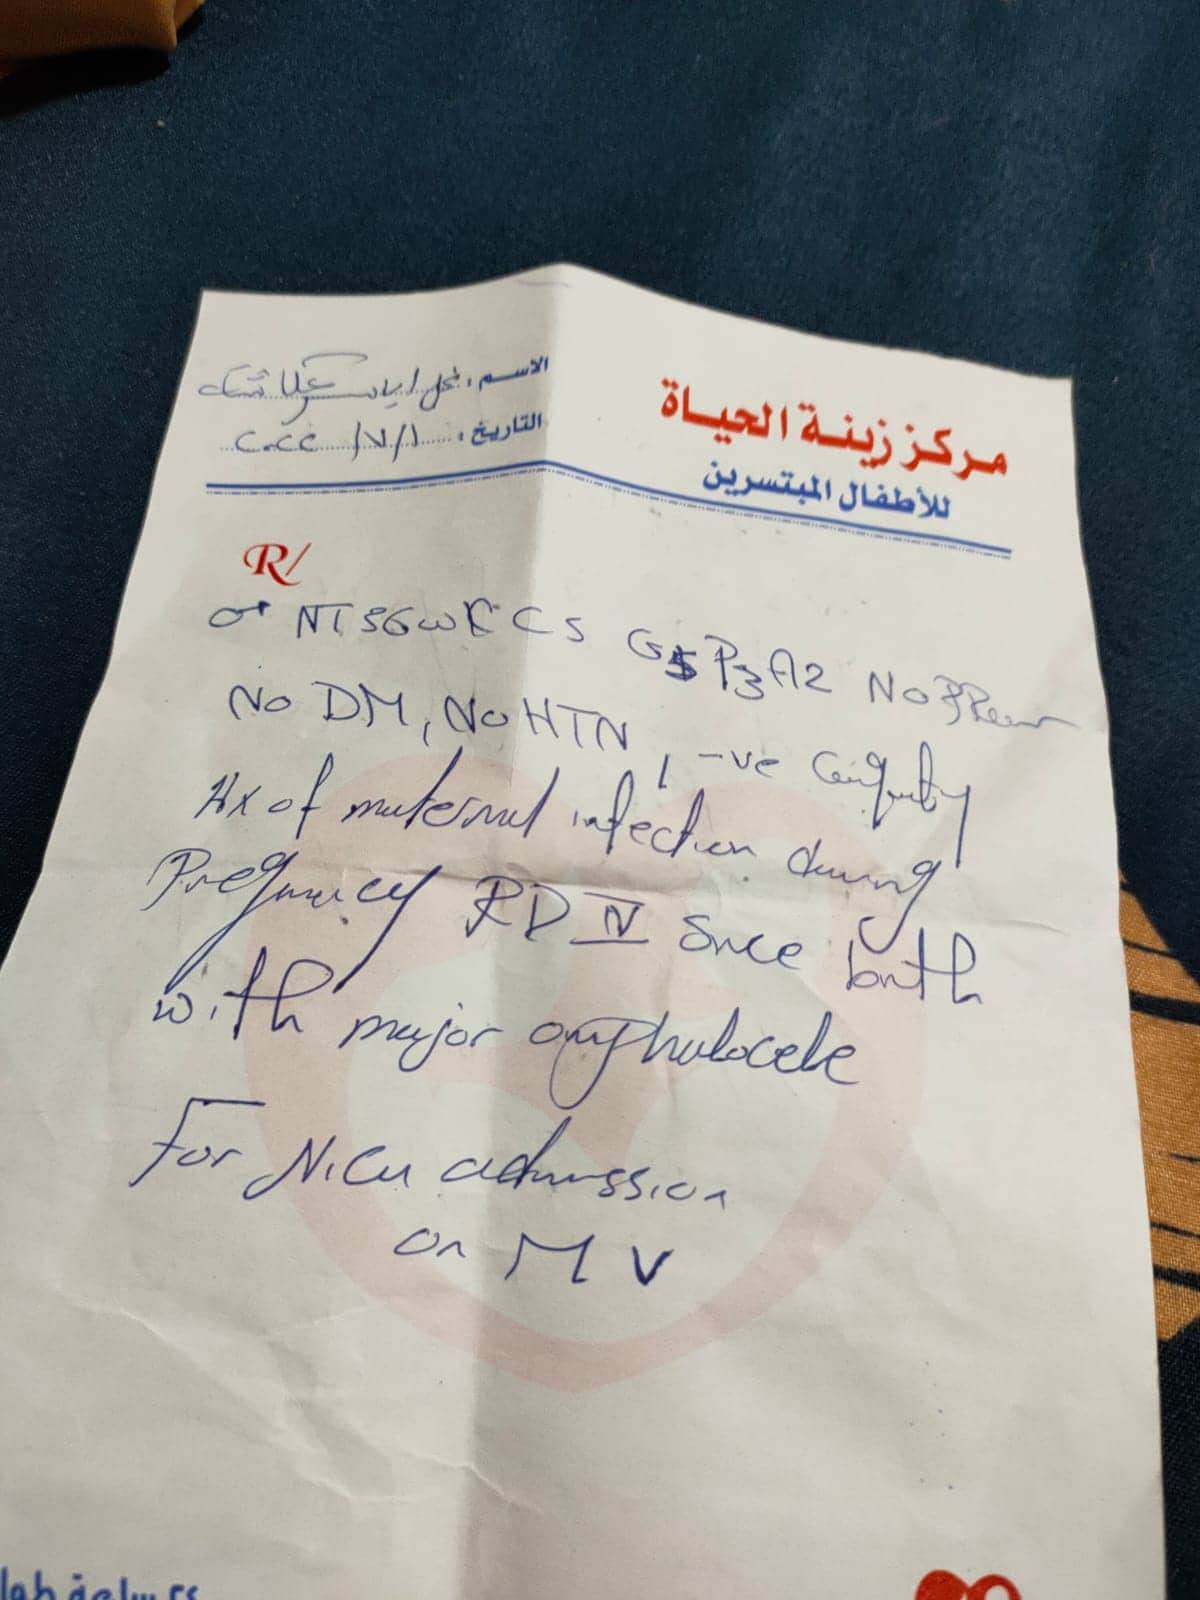 مركز زينة الحياة
للأطفال المبتسرين
الاسم :
التاريخ : ٢٠٢٢ /٧/١
R/
♂ NT 36 wk CS G5 P3 A2 No PROM
No DM, No HTN, -ve
Hx of maternal infection during
Pregnancy RD IV since birth
with major omphalocele
For NICU admission
on MV
٢٤ ساعة